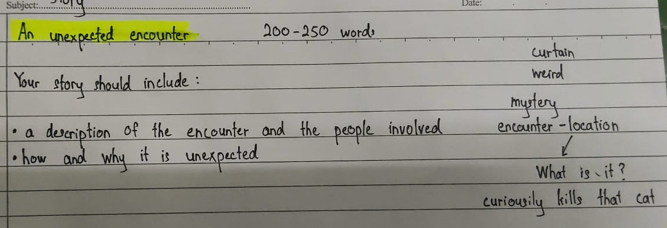 Subject: Story
Date:
An unexpected encounter 200-250 words
curtain
Your story should include : weird
mystery
• a description of the encounter and the people involved encounter-location
• how and why it is unexpected
What is it?
curiousily kills that cat